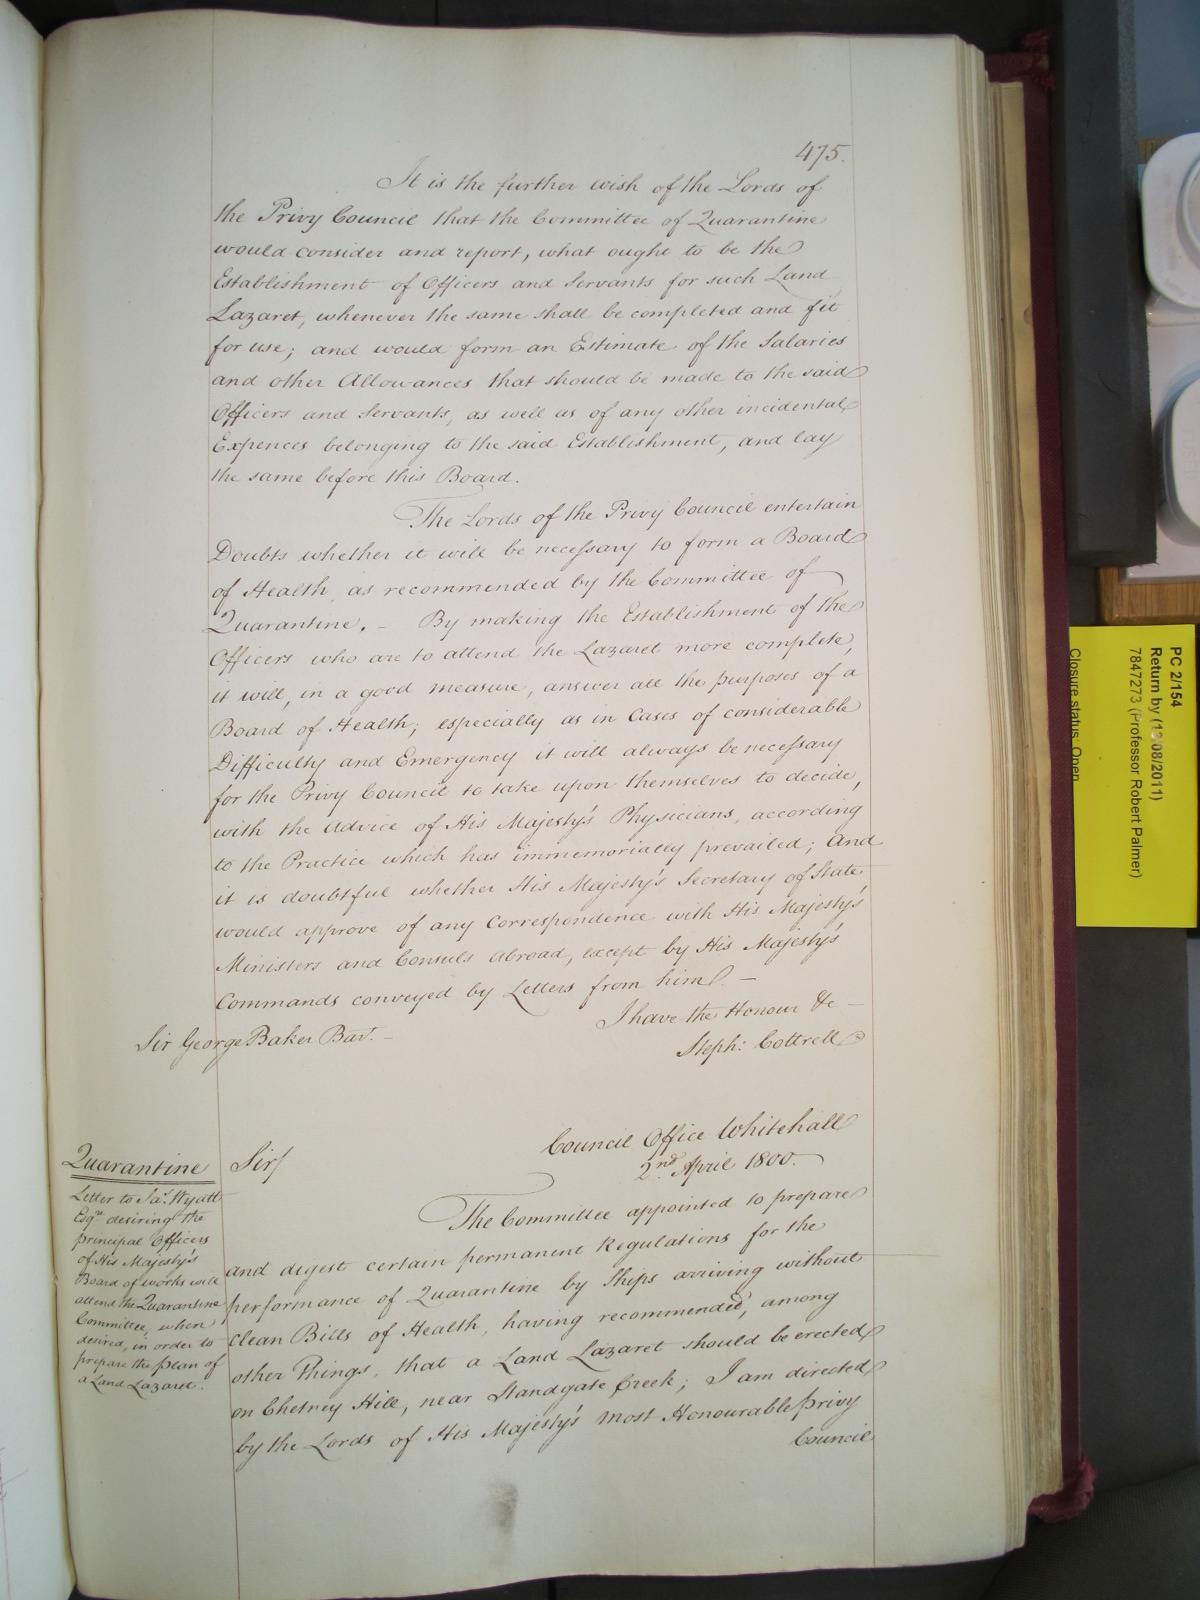 475.
It is the further wish of the Lords of
the Privy Council that the Committee of Quarantine
would consider and report, what ought to be the
Establishment of Officers and Servants for such Land
Lazaret, whenever the same shall be completed and fit
for use; and would form an Estimate of the Salaries
and other Allowances that should be made to the said
Officers and Servants, as well as of any other incidental
Expences belonging to the said Establishment, and lay
the same before this Board.
The Lords of the Privy Council entertain
Doubts whether it will be necessary to form a Board
of Health, as recommended by the Committee of
Quarantine. – By making the Establishment of the
Officers who are to attend the Lazaret more complete,
it will, in a good measure, answer all the purposes of a
Board of Health; especially as in Cases of considerable
Difficulty and Emergency it will always be necessary
for the Privy Council to take upon themselves to decide,
with the Advice of His Majesty's Physicians, according
to the Practice which has immemorially prevailed; And
it is doubtful whether His Majesty's Secretary of State
would approve of any Correspondence with His Majesty's
Ministers and Consuls Abroad, except by His Majesty's
Commands conveyed by Letters from him. –
I have the Honour &c –
Sir George Baker Bart. –
Steph: Cottrell
Council Office Whitehall
2nd April 1800.
Quarantine
Letter to Jas. Wyatt
Esqre desiring the
principal Officers
of His Majesty's
Board of works will
attend the Quarantine
Committee, when
desired, in order to
prepare the plan of
a Land Lazaret.
Sir/
The Committee appointed to prepare
and digest certain permanent Regulations for the
performance of Quarantine by Ships arriving without
clean Bills of Health, having recommended, among
other Things, that a Land Lazaret should be erected
on Chetney Hill, near Standgate Creek; I am directed
by the Lords of His Majesty's most Honourable privy
Council
PC 2/154
Return by (12/08/2011)
7847273 (Professor Robert Palmer)
Closure status: Open